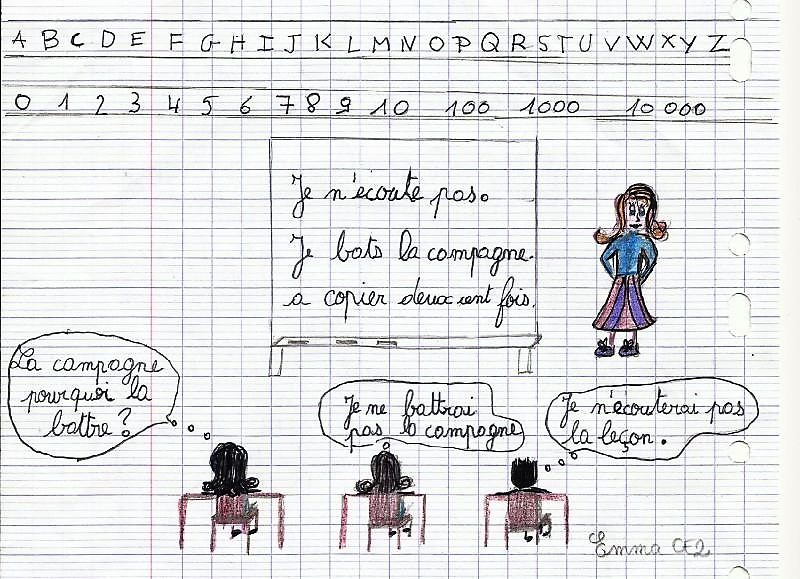 A B C D E F G H I J K L M N O P Q R S T U V W X Y Z
0 1 2 3 4 5 6 7 8 9 10 100 1000 10 000
Je n'écoute pas.
Je bats la campagne.
a copier deux cent fois.
La campagne
pourquoi la
battre ?
Je ne battrai
pas la campagne
Je n'écouterai pas
la leçon.
Emma CE2